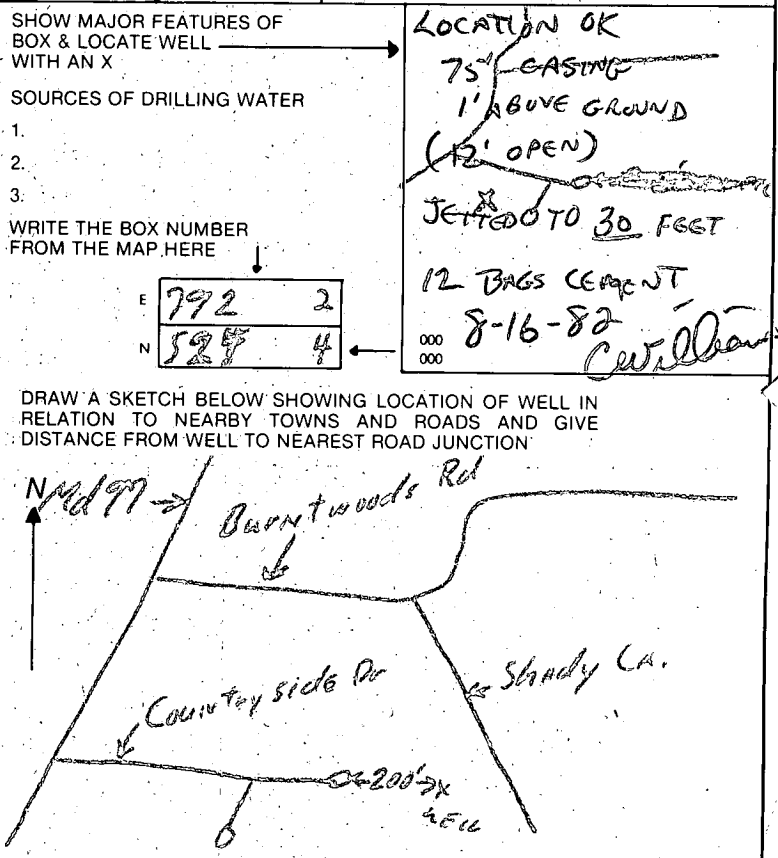 SHOW MAJOR FEATURES OF
BOX & LOCATE WELL
WITH AN X
SOURCES OF DRILLING WATER
1.
2.
3.
WRITE THE BOX NUMBER
FROM THE MAP HERE
E 792 2
N 4
LOCATION OK
75' CASING
1' ABOVE GROUND
(12' OPEN)
JETTED TO 30 FEET
12 BAGS CEMENT
8-16-82
000
000
CWilliams
DRAW A SKETCH BELOW SHOWING LOCATION OF WELL IN
RELATION TO NEARBY TOWNS AND ROADS AND GIVE
DISTANCE FROM WELL TO NEAREST ROAD JUNCTION
N Md 97
Burntwoods Rd
Shady Ln.
Countryside Dr
200' X
WELL